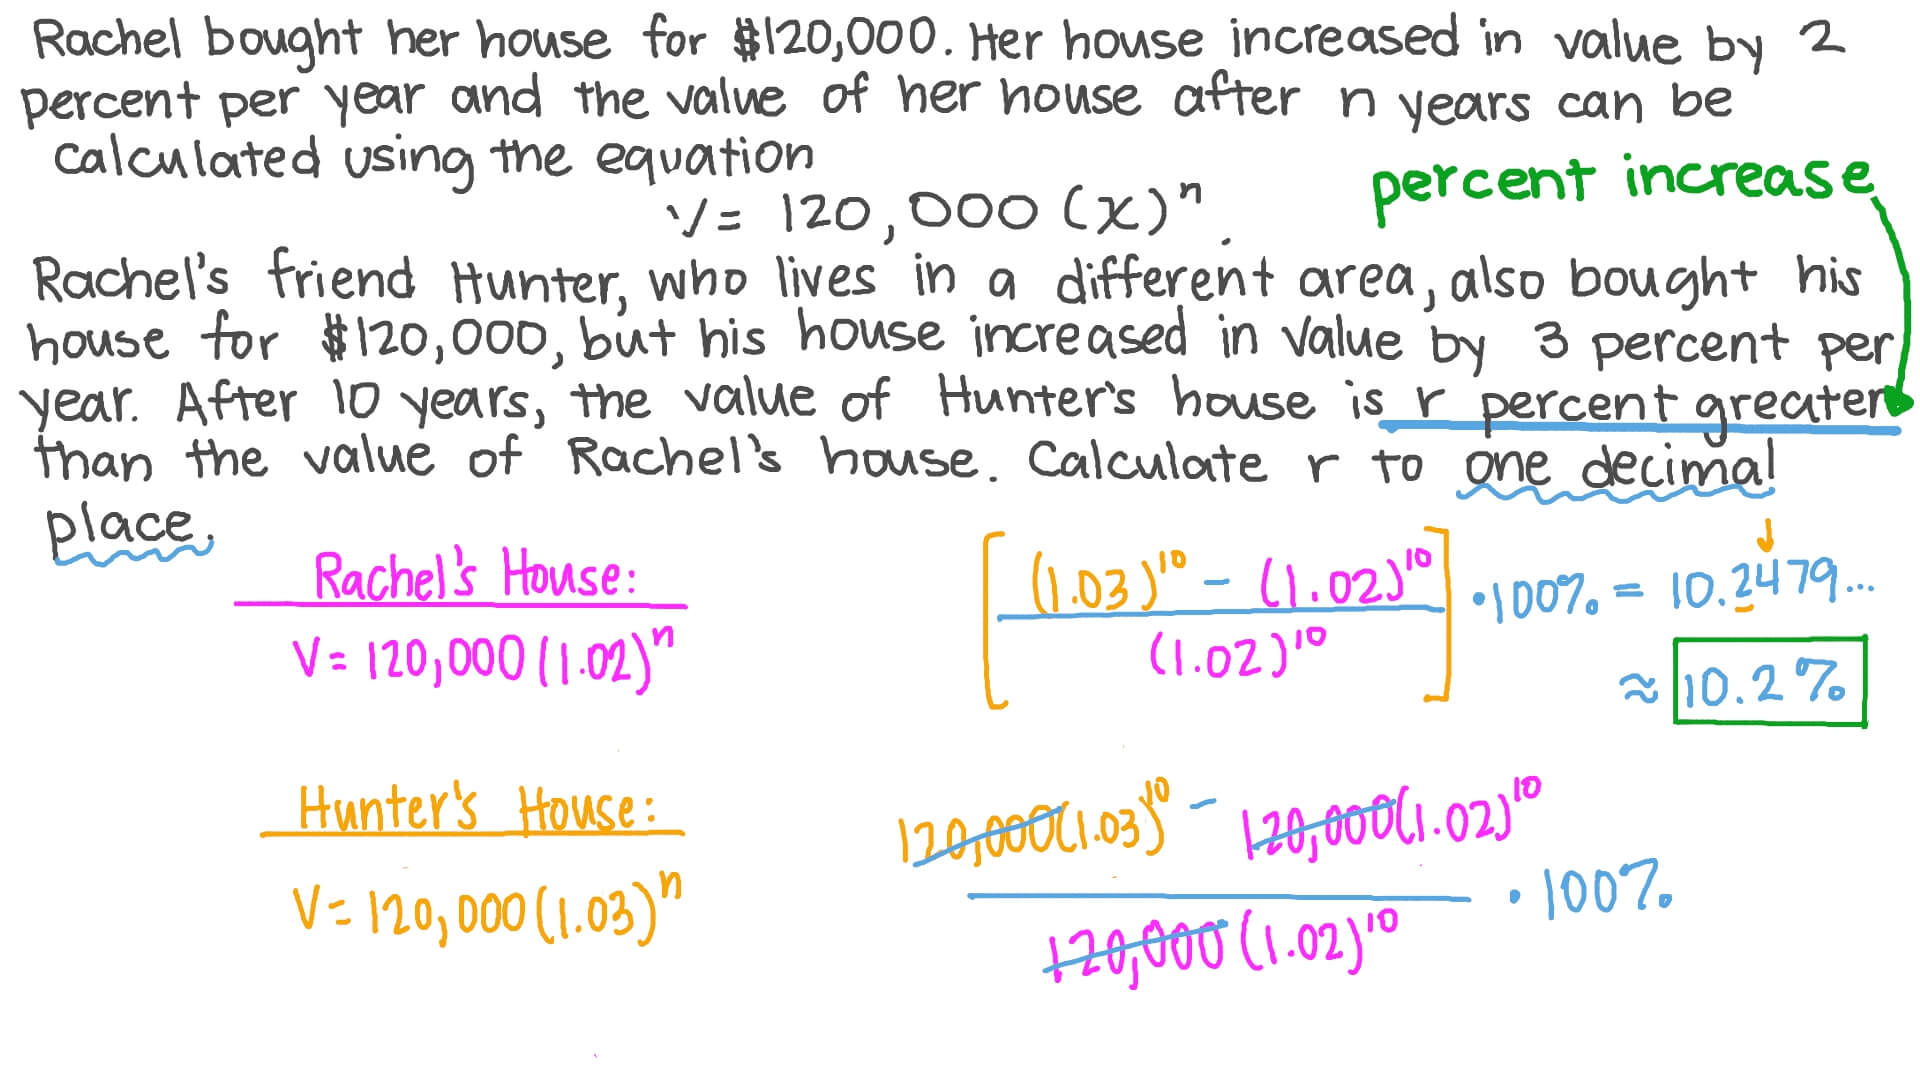 Rachel bought her house for $120,000. Her house increased in value by 2
percent per year and the value of her house after n years can be
calculated using the equation
percent increase
V = 120,000 (x)ⁿ.
Rachel's friend Hunter, who lives in a different area, also bought his
house for $120,000, but his house increased in value by 3 percent per
year. After 10 years, the value of Hunter's house is r percent greater
than the value of Rachel's house. Calculate r to one decimal
place.
Rachel's House:
V = 120,000 (1.02)ⁿ
[ (1.03)¹⁰ - (1.02)¹⁰
(1.02)¹⁰ ] • 100% = 10.2479...
≈ 10.2%
Hunter's House:
V = 120,000 (1.03)ⁿ
120,000(1.03)¹⁰ - 120,000(1.02)¹⁰
120,000 (1.02)¹⁰ • 100%